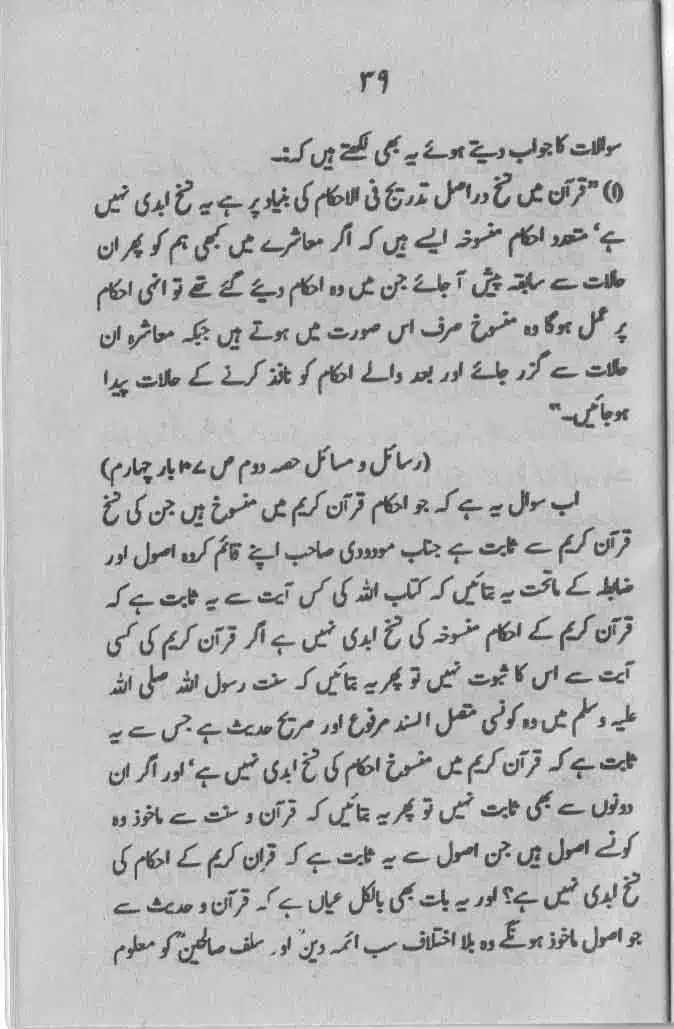 ۳۹
سوالات کا جواب دیتے ہوئے یہ بھی لکھتے ہیں کہ:۔
(۱) "قرآن میں نسخ دراصل تدریج فی الاحکام کی بنیاد پر ہے یہ نسخ ابدی نہیں
ہے' متعدد احکام منسوخہ ایسے ہیں کہ اگر معاشرے میں کبھی ہم کو پھر ان
حالات سے سابقہ پیش آ جائے جن میں وہ احکام دیئے گئے تھے تو انہی احکام
پر عمل ہوگا وہ منسوخ صرف اس صورت میں ہوتے ہیں جبکہ معاشرہ ان
حالات سے گزر جائے اور بعد والے احکام کو نافذ کرنے کے حالات پیدا
ہوجائیں۔"
(رسائل و مسائل حصہ دوم ص ۴۷ بار چہارم)
اب سوال یہ ہے کہ جو احکام قرآن کریم میں منسوخ ہیں جن کی نسخ
قرآن کریم سے ثابت ہے جناب مودودی صاحب اپنے قائم کردہ اصول اور
ضابطہ کے ماتحت یہ بتائیں کہ کتاب اللہ کی کس آیت سے یہ ثابت ہے کہ
قرآن کریم کے احکام منسوخہ کی نسخ ابدی نہیں ہے اگر قرآن کریم کی کسی
آیت سے اس کا ثبوت نہیں تو پھر یہ بتائیں کہ سنت رسول اللہ صلی اللہ
علیہ وسلم میں وہ کونسی متصل السند مرفوع اور صریح حدیث ہے جس سے یہ
ثابت ہے کہ قرآن کریم میں منسوخ احکام کی نسخ ابدی نہیں ہے' اور اگر ان
دونوں سے بھی ثابت نہیں تو پھر یہ بتائیں کہ قرآن و سنت سے ماخوذ وہ
کونے اصول ہیں جن اصول سے یہ ثابت ہے کہ قرآن کریم کے احکام کی
نسخ ابدی نہیں ہے؟ اور یہ بات بھی بالکل عیاں ہے کہ قرآن و حدیث سے
جو اصول ماخوذ ہونگے وہ بلا اختلاف سب ائمہ دینؒ اور سلف صالحینؒ کو معلوم